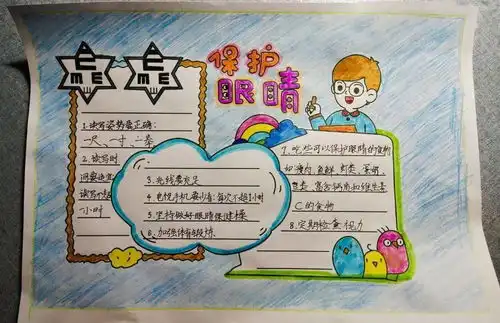 保护
眼睛
E
E
M E
M E
1.读写姿势要正确:
一尺、一寸、一拳
2.读写时
间要适宜
读写不
小时
3.光线要充足
4.电视手机要少看:每次不超1小时
5.坚持做好眼睛保健操
6.加强体育锻炼
7.吃些可以保护眼睛的食物
如瘦肉 鱼鲜 虾类 蛋
豆类 富含钙质和维生素
C的食物
8.定期检查视力